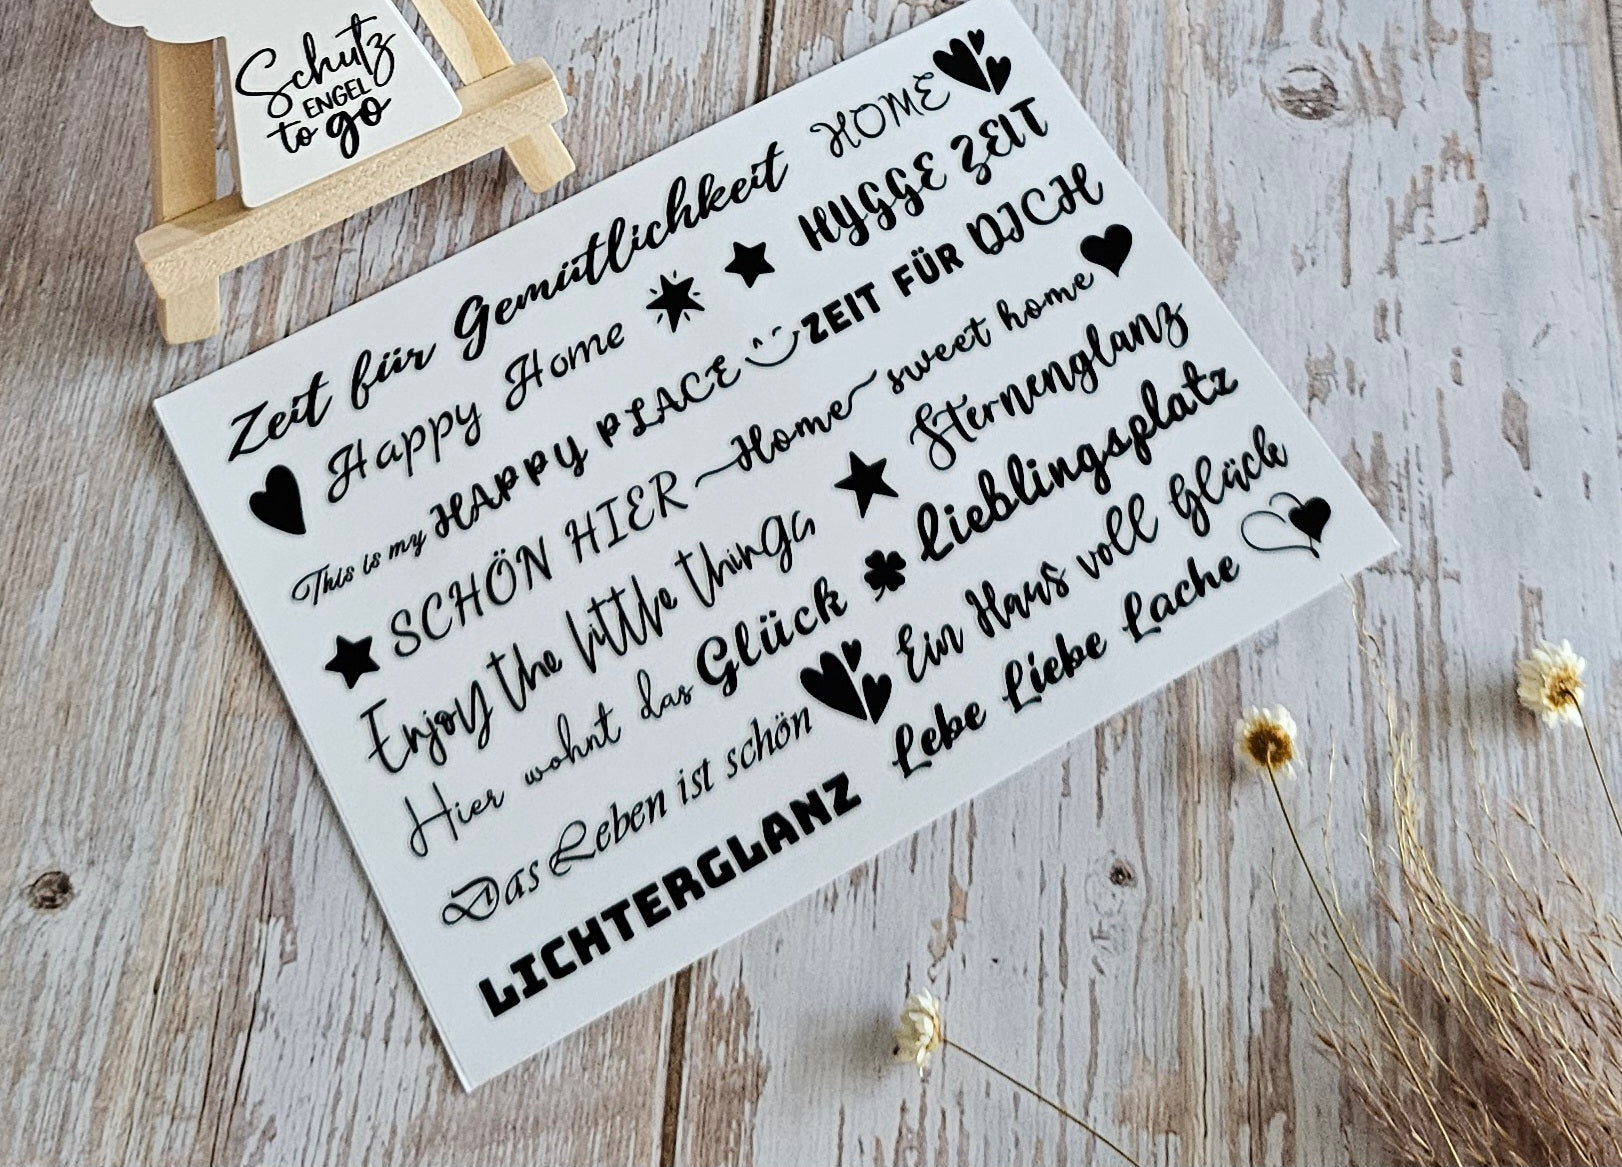 Schutz
ENGEL
to go
Zeit für Gemütlichkeit HOME
Happy Home HYGGE ZEIT
This is my HAPPY PLACE ZEIT FÜR DICH
SCHÖN HIER Home sweet home
Enjoy the little things Sternenglanz
Hier wohnt das Glück Lieblingsplatz
Das Leben ist schön Ein Haus voll Glück
LICHTERGLANZ Lebe Liebe Lache